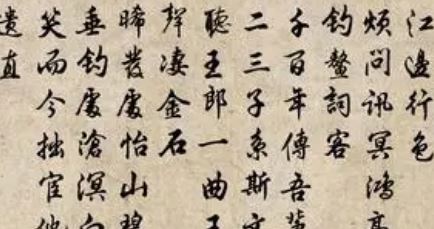 江邊行色
煩問訊冥鴻高
釣鰲詞客
千百年傳吾輩
二三子系斯文
聽王郎一曲玉
聲淒金石
晞發處怡山碧
垂釣處滄溟白
笑而今拙宦他
遺直